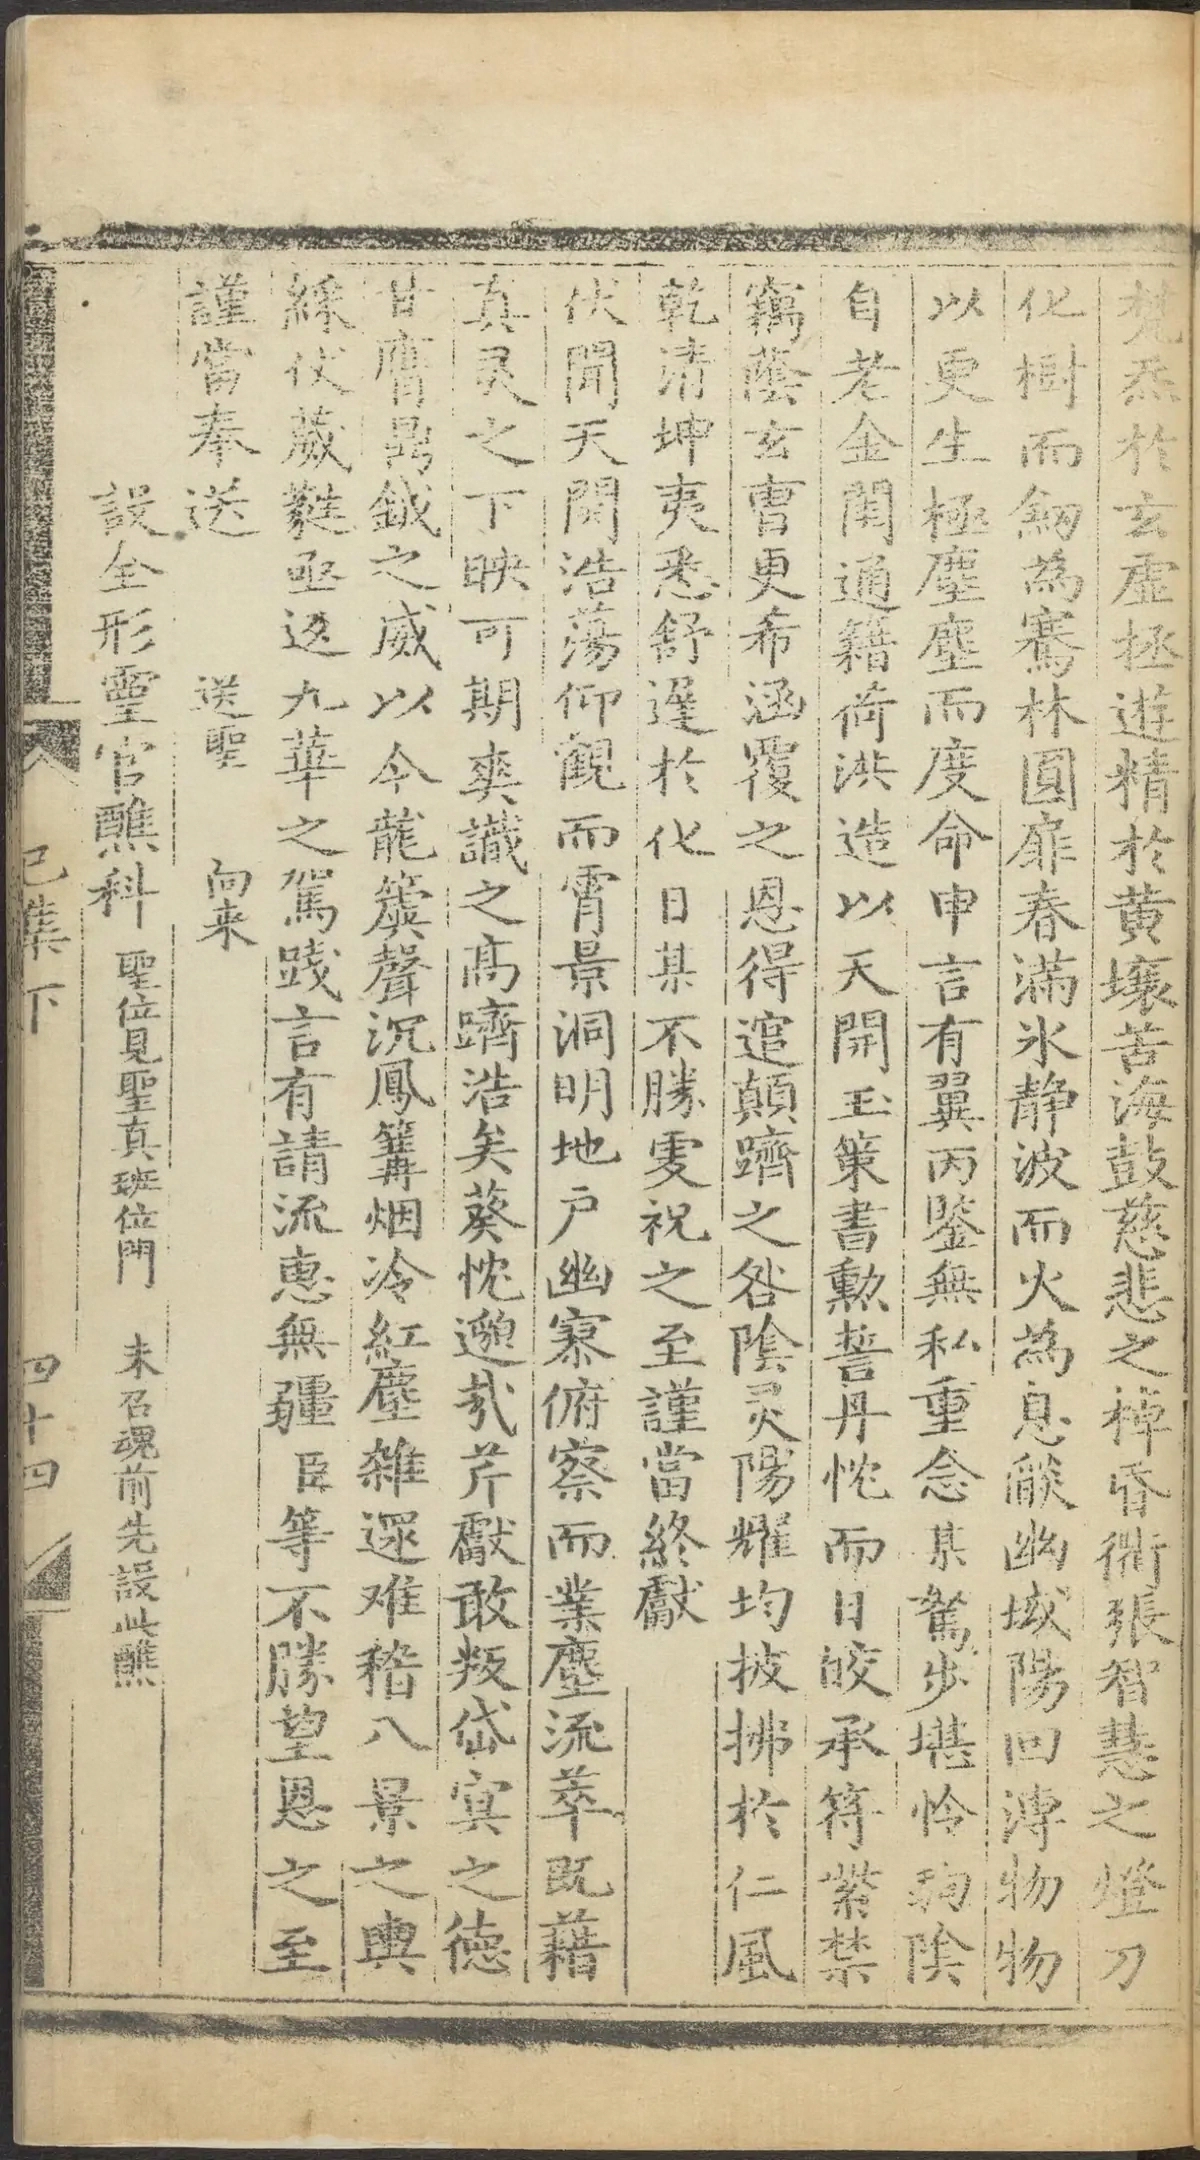 梵炁於玄虛拯遊精於黃壤苦海鼓慈悲之棹昏衢張智慧之燈刀
化樹而劒為騫林圓扉春滿氷静波而火為息燄幽域陽回溥物物
以更生極塵塵而度命申言有翼丙鑒無私重念某駑步堪怜駒隂
自老金閨通籍荷洪造以天開玉策書勲誓丹忱而日皎承符紫禁
竊蔭玄曹更希涵覆之恩得逭顛躋之咎隂灵陽耀均披拂於仁風
乾清坤夷悉舒遲於化日某不勝虔祝之至謹當終獻
伏聞天開浩蕩仰觀而霄景洞明地户幽寥俯察而業塵流萃既藉
真灵之下映可期爽識之髙躋浩矣葵忱邈㢤芹獻敢叛岱㝠之德
甘膺昺鉞之威以今龍簴聲沉鳳篝烟冷紅塵雜遝难稽八景之輿
綵仗葳蕤亟返九華之駕踐言有請流惠無疆臣等不勝望恩之至
謹當奉送
送聖
向来
設全形靈官醮科 聖位見聖真班位門 未召魂前先設此醮
己集下 四十四